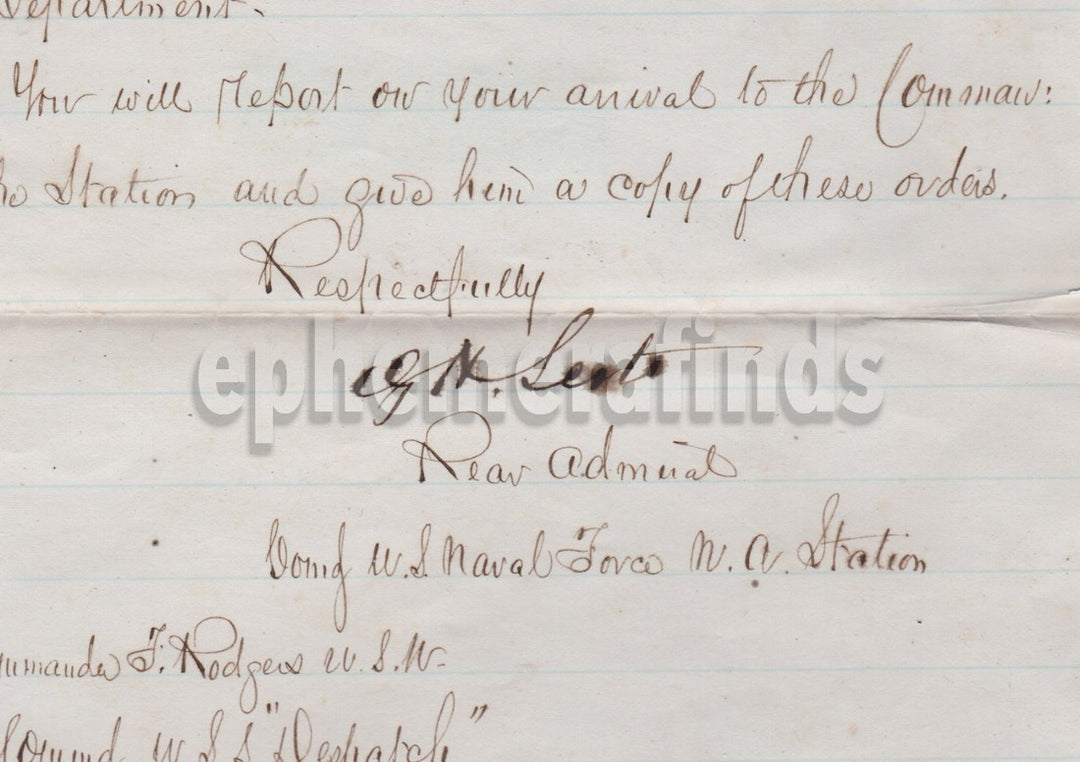 Department.
You will report on your arrival to the Comman:
Station and give him a copy of these orders.
Respectfully
ephemerafinds
G H.
Rear Admiral
Comdg U.S. Naval Force N. A. Station
Commander F. Rodgers U.S.N.
Commd U S S "Despatch"